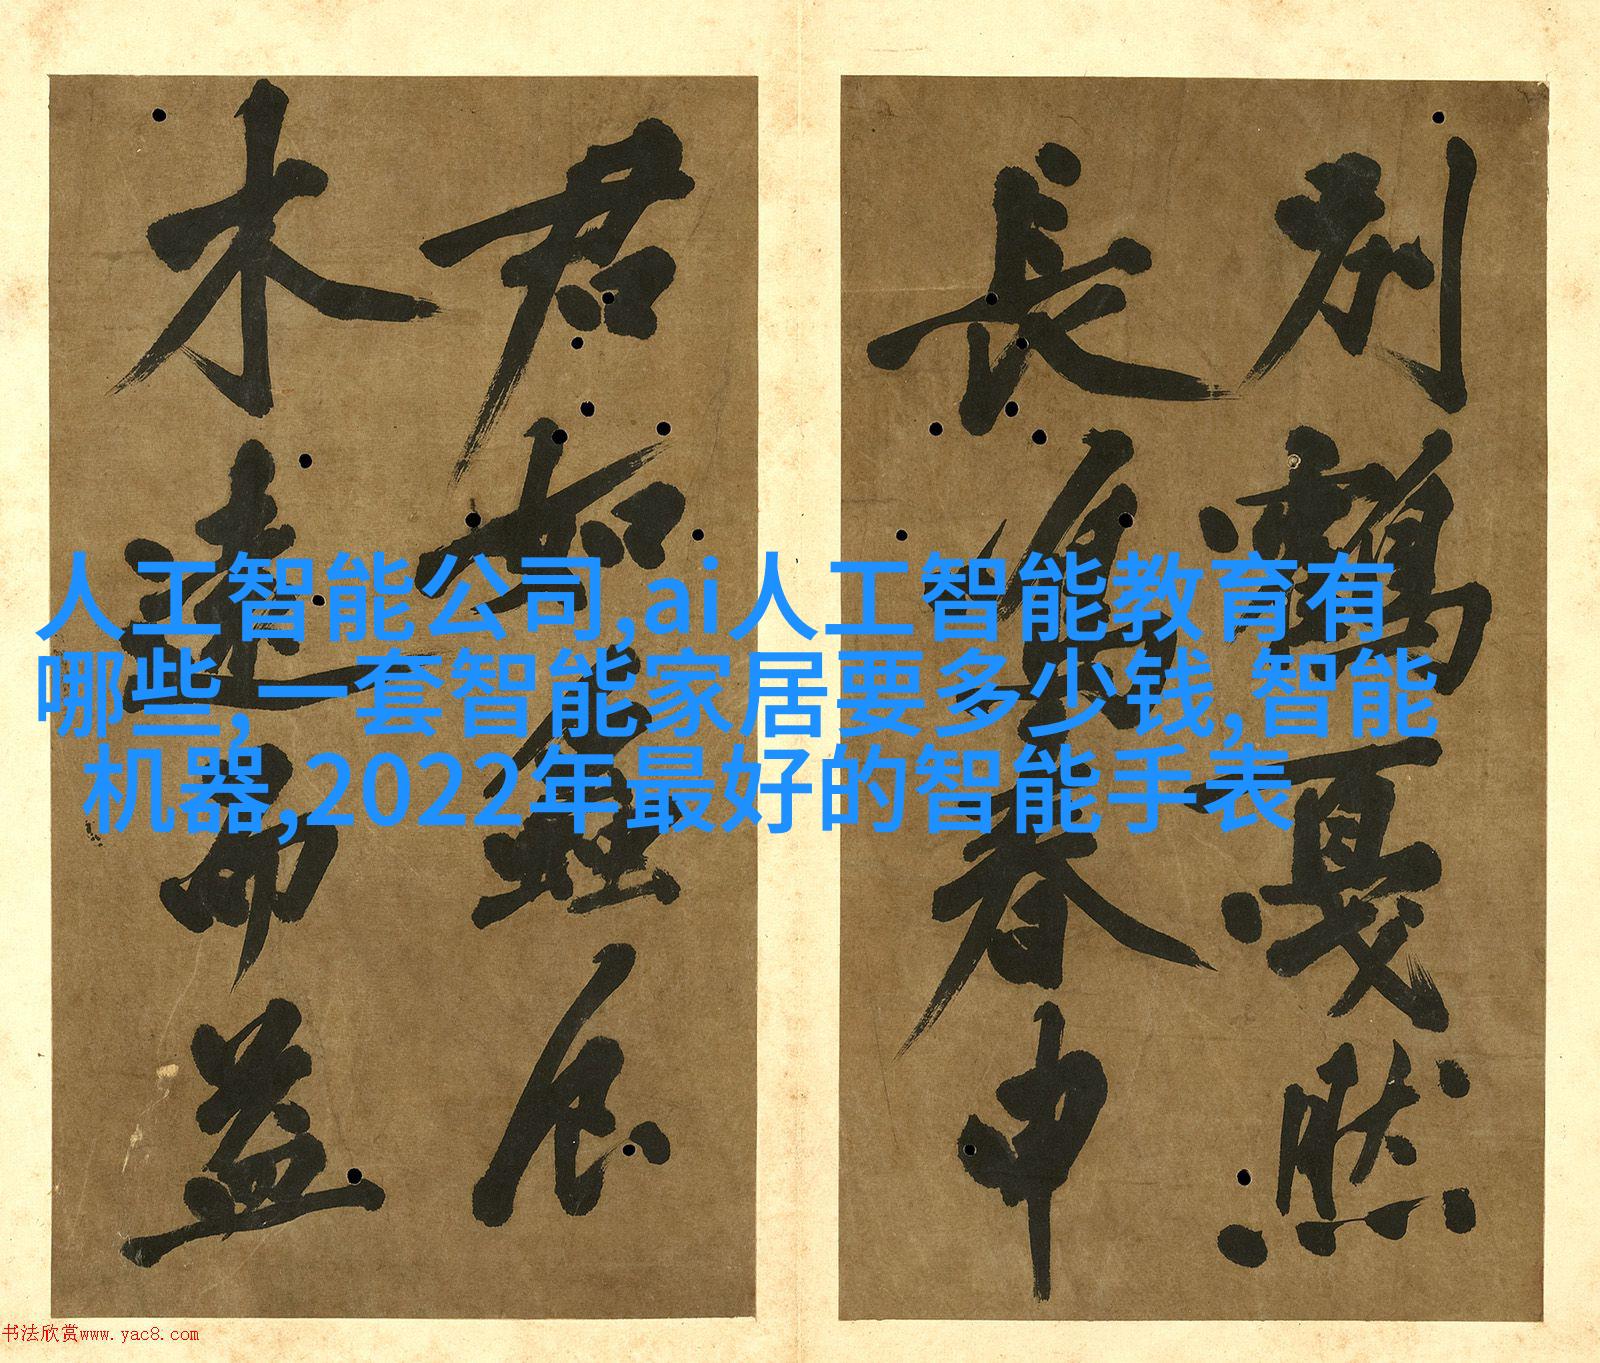 人工智能公司,ai人工智能教育有
哪些,一套智能家居要多少钱,智能
机器,2022年最好的智能手表
别鶴戛然
長春申
君如
木遠而益
书法欣赏www.yac8.com